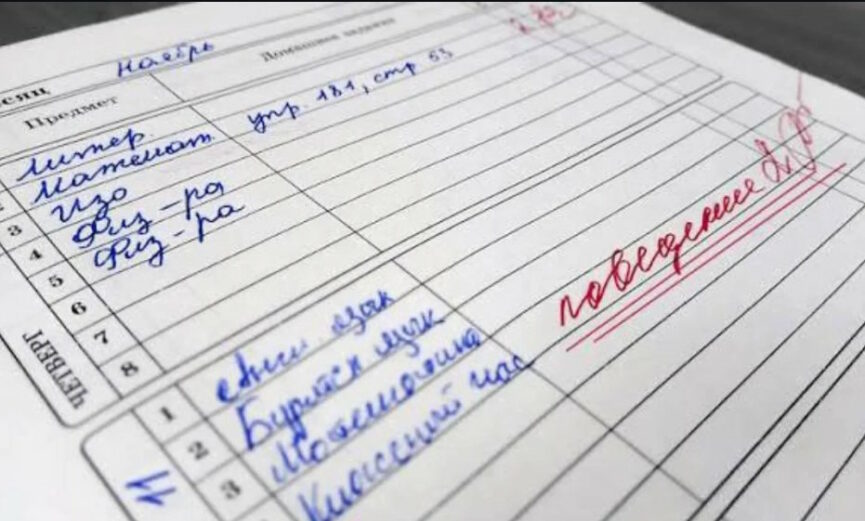 есяц ноябрь
Предмет Домашнее задание
литер.
математ. упр. 181, стр 53
3 изо
4 физ-ра
5 физ-ра
6
7
8
ЧЕТВЕРГ
поведение 2
1 Англ. язык
2 Бурятск язык
3 Математика
Классный час
11